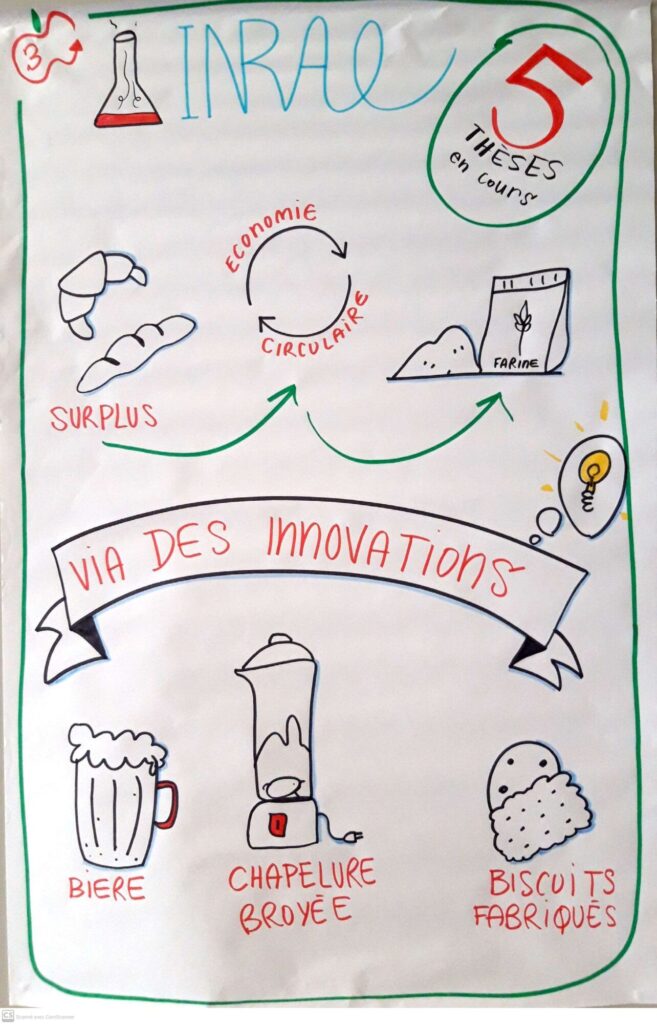 3
INRAe
5
THÈSES
en cours
ECONOMIE
CIRCULAIRE
FARINE
SURPLUS
VIA DES INNOVATIONS
BIERE
CHAPELURE
BROYÉE
BISCUITS
FABRIQUÉS
CS Scanné avec CamScanner